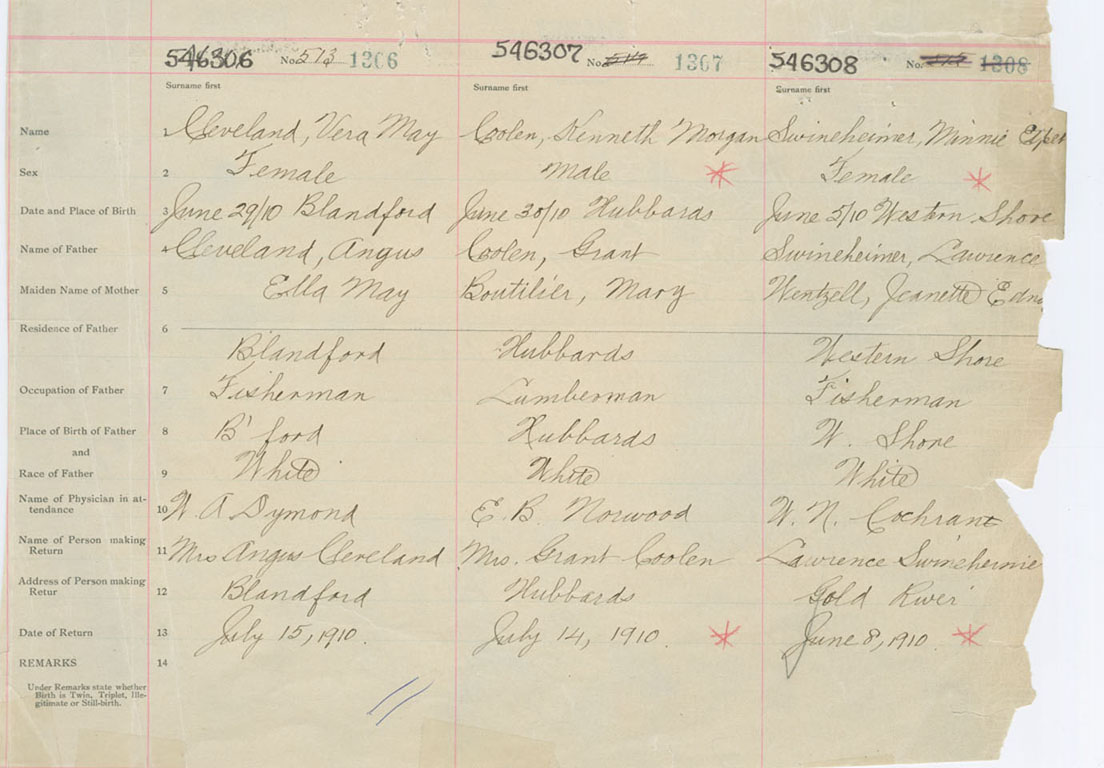 546306 No. 573 1306 546307 No. 1307 546308 No. 1308
Surname first Surname first Surname first
Name 1 Cleveland, Vera May Coolen, Kenneth Morgan Swineheimer, Minnie
Sex 2 Female Male Female
Date and Place of Birth 3 June 29/10 Blandford June 30/10 Hubbards June 5/10 Western Shore
Name of Father 4 Cleveland, Angus Coolen, Grant Swineheimer, Lawrence
Maiden Name of Mother 5 Ella May Boutilier, Mary Wentzell, Jeanette Edna
Residence of Father 6
Blandford Hubbards Western Shore
Occupation of Father 7 Fisherman Lumberman Fisherman
Place of Birth of Father 8 B'ford Hubbards W. Shore
and
Race of Father 9 White White White
Name of Physician in at-
tendance 10 W. A Dymond E. B. Norwood W. N. Cochrane
Name of Person making
Return 11 Mrs Angus Cleveland Mrs. Grant Coolen Lawrence Swineheimer
Address of Person making
Retur 12 Blandford Hubbards Gold River
Date of Return 13 July 15, 1910. July 14, 1910. June 8, 1910.
REMARKS 14
Under Remarks state whether
Birth is Twin, Triplet, Ille-
gitimate or Still-birth.